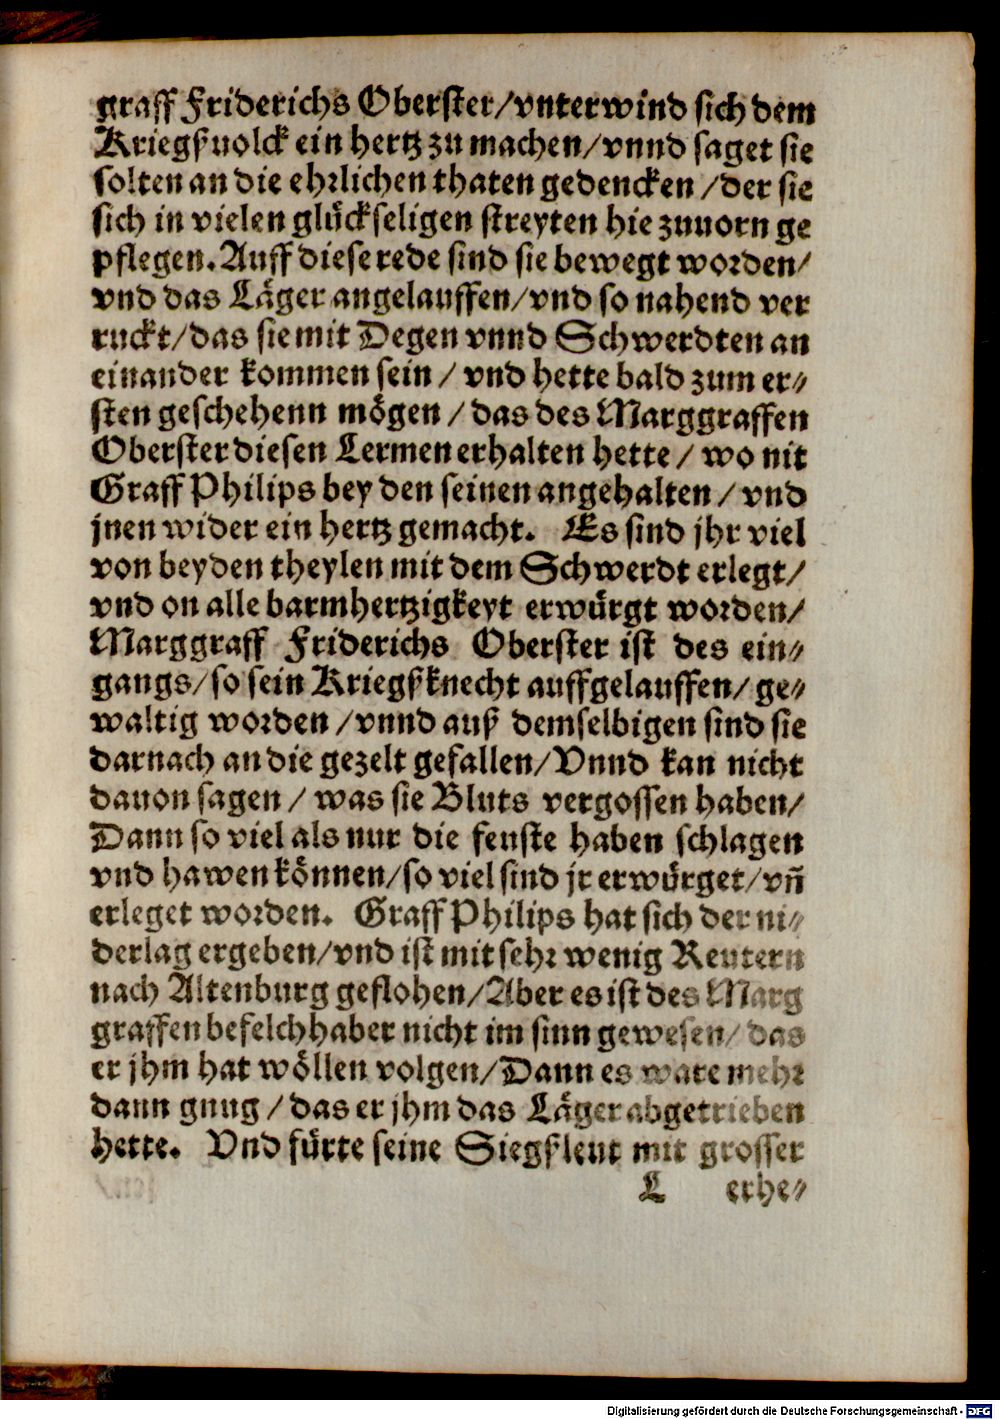 graff Friderichs Oberster/vnterwind sich dem
Kriegßuolck ein hertz zu machen/vnnd saget sie
solten an die ehrlichen thaten gedencken/der sie
sich in vielen glückseligen streyten hie zuuorn ge
pflegen. Auff diese rede sind sie bewegt worden/
vnd das Läger angelauffen/vnd so nahend ver
ruckt/das sie mit Degen vnnd Schwerdten an
einander kommen sein/vnd hette bald zum er⸗
sten geschehenn mögen/das des Marggraffen
Oberster diesen Lermen erhalten hette/wo nit
Graff Philips bey den seinen angehalten/vnd
jnen wider ein hertz gemacht. Es sind jhr viel
von beyden theylen mit dem Schwerdt erlegt/
vnd on alle barmhertzigkeyt erwürgt worden/
Marggraff Friderichs Oberster ist des ein⸗
gangs/so sein Kriegßknecht auffgelauffen/ge⸗
waltig worden/vnnd auß demselbigen sind sie
darnach an die gezelt gefallen/Vnnd kan nicht
dauon sagen/was sie Bluts vergossen haben/
Dann so viel als nur die feuste haben schlagen
vnd hawen können/so viel sind jr erwürget/vñ
erleget worden. Graff Philips hat sich der ni⸗
derlag ergeben/vnd ist mit sehr wenig Reutern
nach Altenburg geflohen/Aber es ist des Marg
graffen befelchhaber nicht im sinn gewesen/das
er jhm hat wöllen volgen/Dann es ware mehr
dann gnug/das er jhm das Läger abgetrieben
hette. Vnd fürte seine Siegßleut mit grosser
L erhe⸗
Digitalisierung gefördert durch die Deutsche Forschungsgemeinschaft - DFG